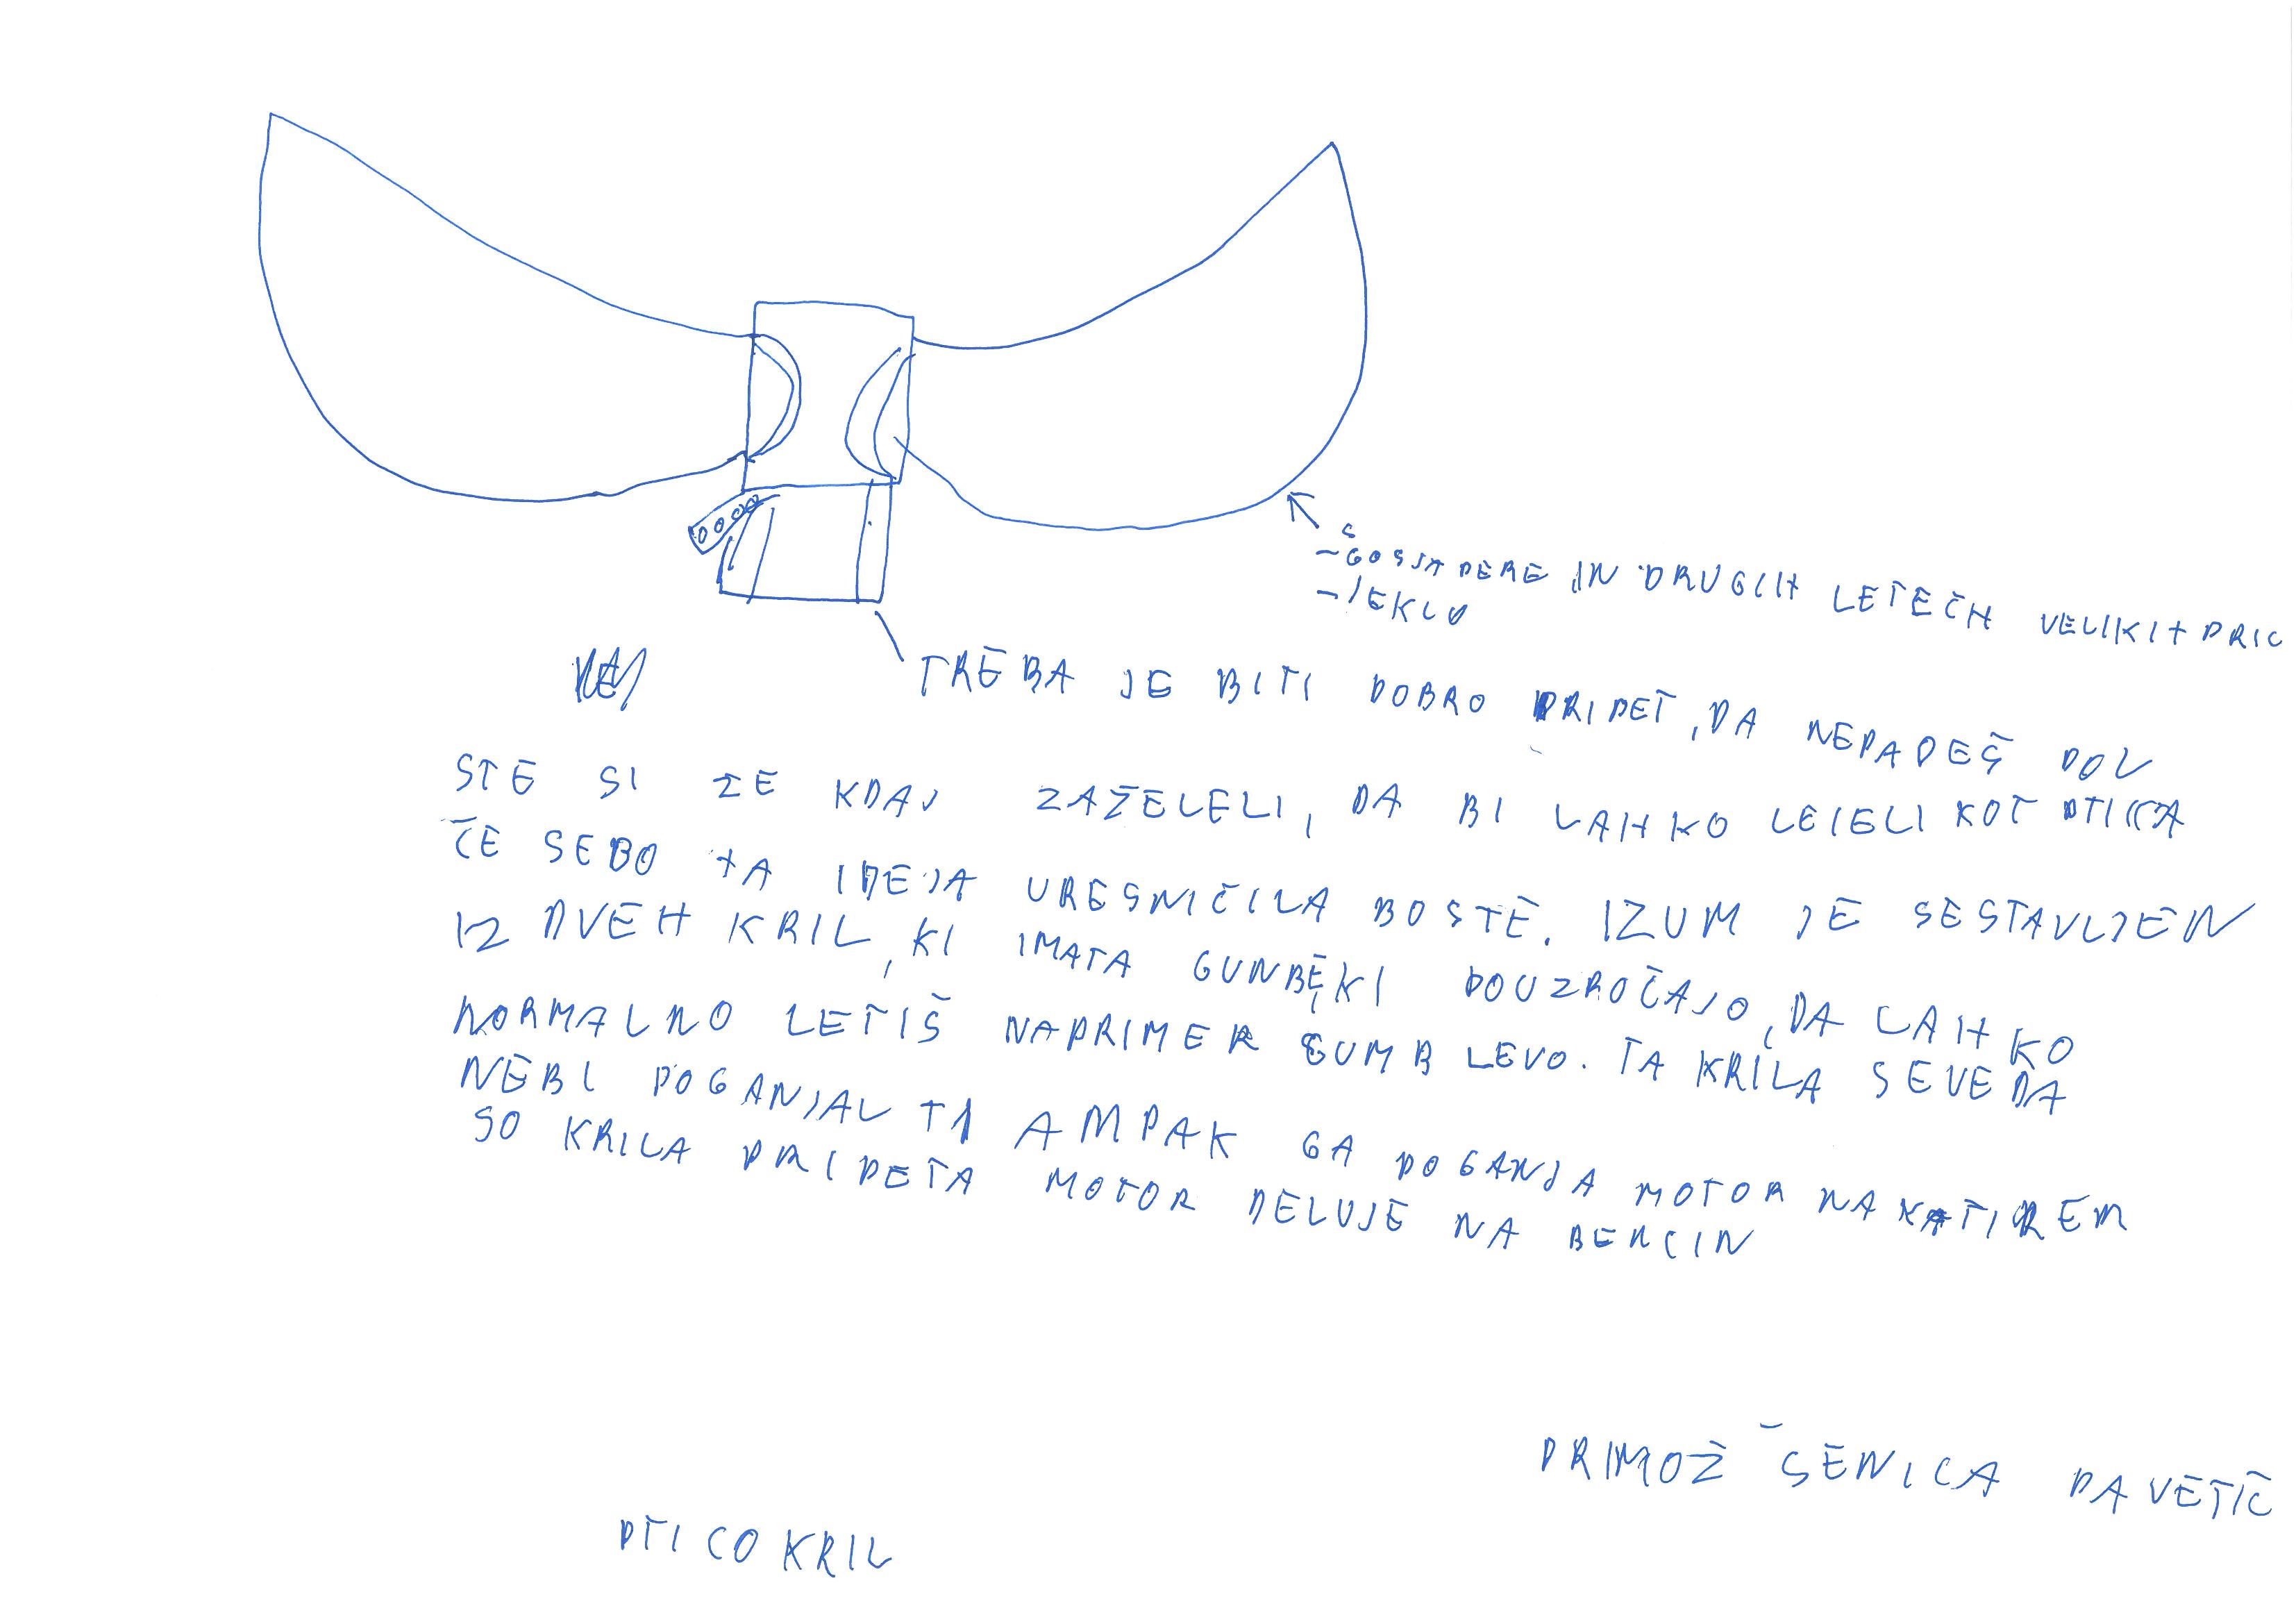 GOSJA PERE IN DRUGIH LETEČH VELIKIH PTIC
-JEKLO
TREBA JE BITI DOBRO PRIPET, DA NEPADEŠ DOL
STE SI ŽE KDAJ ZAŽELELI, DA BI LAHKO LETELI KOT PTICA
ČE SEBO TA IDEJA URESNIČILA BOSTE. IZUM JE SESTAVLJEN
IZ DVEH KRIL, KI IMATA GUNBE, KI POUZROČAJO, DA LAHKO
NORMALNO LETIŠ NAPRIMER GUMB LEVO. TA KRILA SEVEDA
NEBI POGANJAL TI AMPAK GA POGANJA MOTOR NA KATIREM
SO KRILA PRIPETA MOTOR DELUJE NA BENCIN
PRIMOŽ ŠENICA PAVETIČ
PTICOKRIL